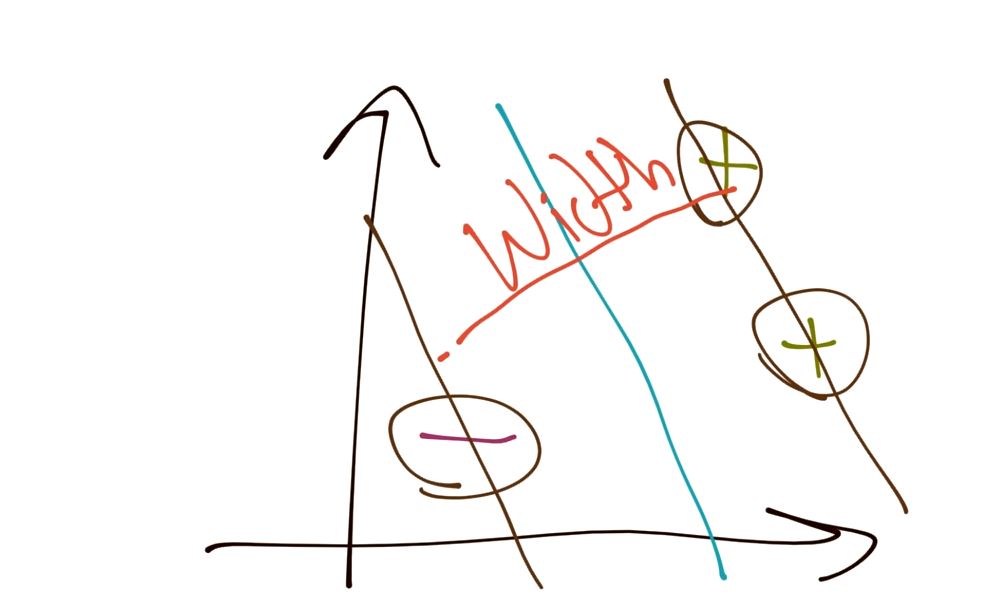 Width
+
+
−